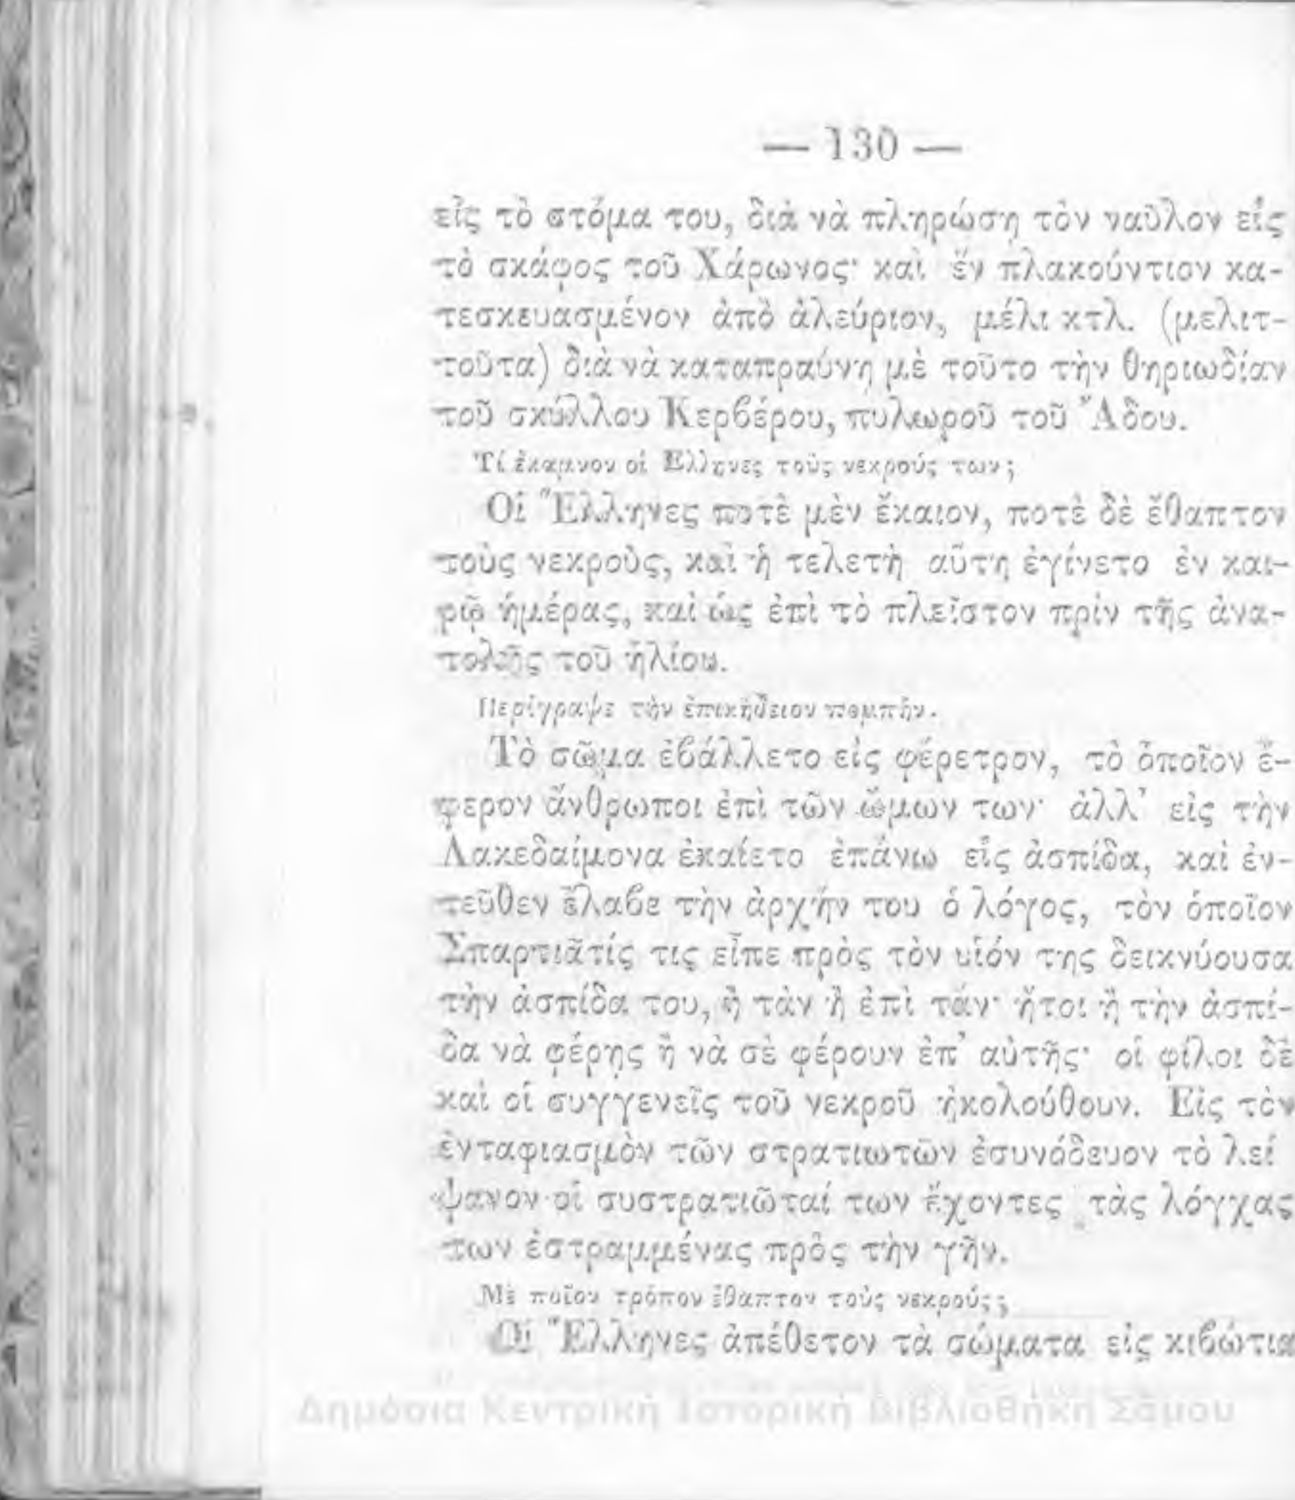 — 130 —
εἰς τὸ στόμα του, διὰ νὰ πληρώσῃ τὸν ναῦλον εἰς
τὸ σκάφος τοῦ Χάρωνος· καὶ ἓν πλακούντιον κα-
τεσκευασμένον ἀπὸ ἀλεύριον, μέλι κτλ. (μελιτ-
τοῦτα) διὰ νὰ καταπραΰνῃ μὲ τοῦτο τὴν θηριωδίαν
τοῦ σκύλλου Κερβέρου, πυλωροῦ τοῦ Ἅδου.
Τί ἔκαμνον οἱ Ἕλληνες τοὺς νεκρούς των;
Οἱ Ἕλληνες ποτὲ μὲν ἔκαιον, ποτὲ δὲ ἔθαπτον
τοὺς νεκροὺς, καὶ ἡ τελετὴ αὕτη ἐγίνετο ἐν και-
ρῷ ἡμέρας, καὶ ὡς ἐπὶ τὸ πλεῖστον πρὶν τῆς ἀνα-
τολῆς τοῦ ἡλίου.
Περίγραψε τὴν ἐπικήδειον πομπήν.
Τὸ σῶμα ἐβάλλετο εἰς φέρετρον, τὸ ὁποῖον ἔ-
φερον ἄνθρωποι ἐπὶ τῶν ὤμων των· ἀλλ’ εἰς τὴν
Λακεδαίμονα ἐκαίετο ἐπάνω εἰς ἀσπίδα, καὶ ἐν-
τεῦθεν ἔλαβε τὴν ἀρχήν του ὁ λόγος, τὸν ὁποῖον
Σπαρτιᾶτίς τις εἶπε πρὸς τὸν υἱόν της δεικνύουσα
τὴν ἀσπίδα του, ἢ τὰν ἢ ἐπὶ τάν· ἤτοι ἢ τὴν ἀσπί-
δα νὰ φέρῃς ἢ νὰ σὲ φέρουν ἐπ’ αὐτῆς· οἱ φίλοι δὲ
καὶ οἱ συγγενεῖς τοῦ νεκροῦ ἠκολούθουν. Εἰς τὸν
ἐνταφιασμὸν τῶν στρατιωτῶν ἐσυνόδευον τὸ λεί
ψανον οἱ συστρατιῶταί των ἔχοντες τὰς λόγχας
των ἐστραμμένας πρὸς τὴν γῆν.
Μὲ ποῖον τρόπον ἔθαπτον τοὺς νεκρούς;
Οἱ Ἕλληνες ἀπέθετον τὰ σώματα εἰς κιβώτια
Δημόσια Κεντρική Ιστορική Βιβλιοθήκη Σάμου